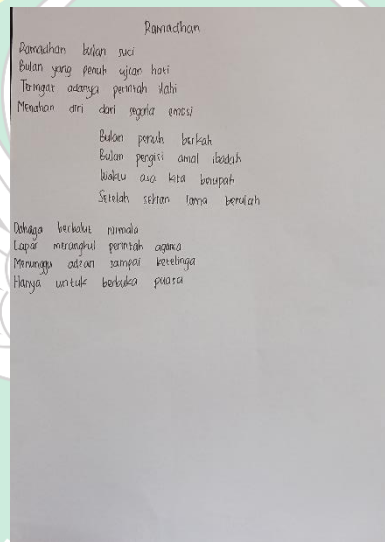 Ramadhan
Ramadhan bulan suci
Bulan yang penuh ujian hati
Teringat adanya perintah ilahi
Menahan diri dari segala emosi
Bulan penuh berkah
Bulan pengisi amal ibadah
Walau asa kita berupah
Setelah sekian lama berulah
Dahaga berbalut nirmala
Lapar merangkul perintah agama
Menunggu adzan sampai ketelinga
Hanya untuk berbuka puasa